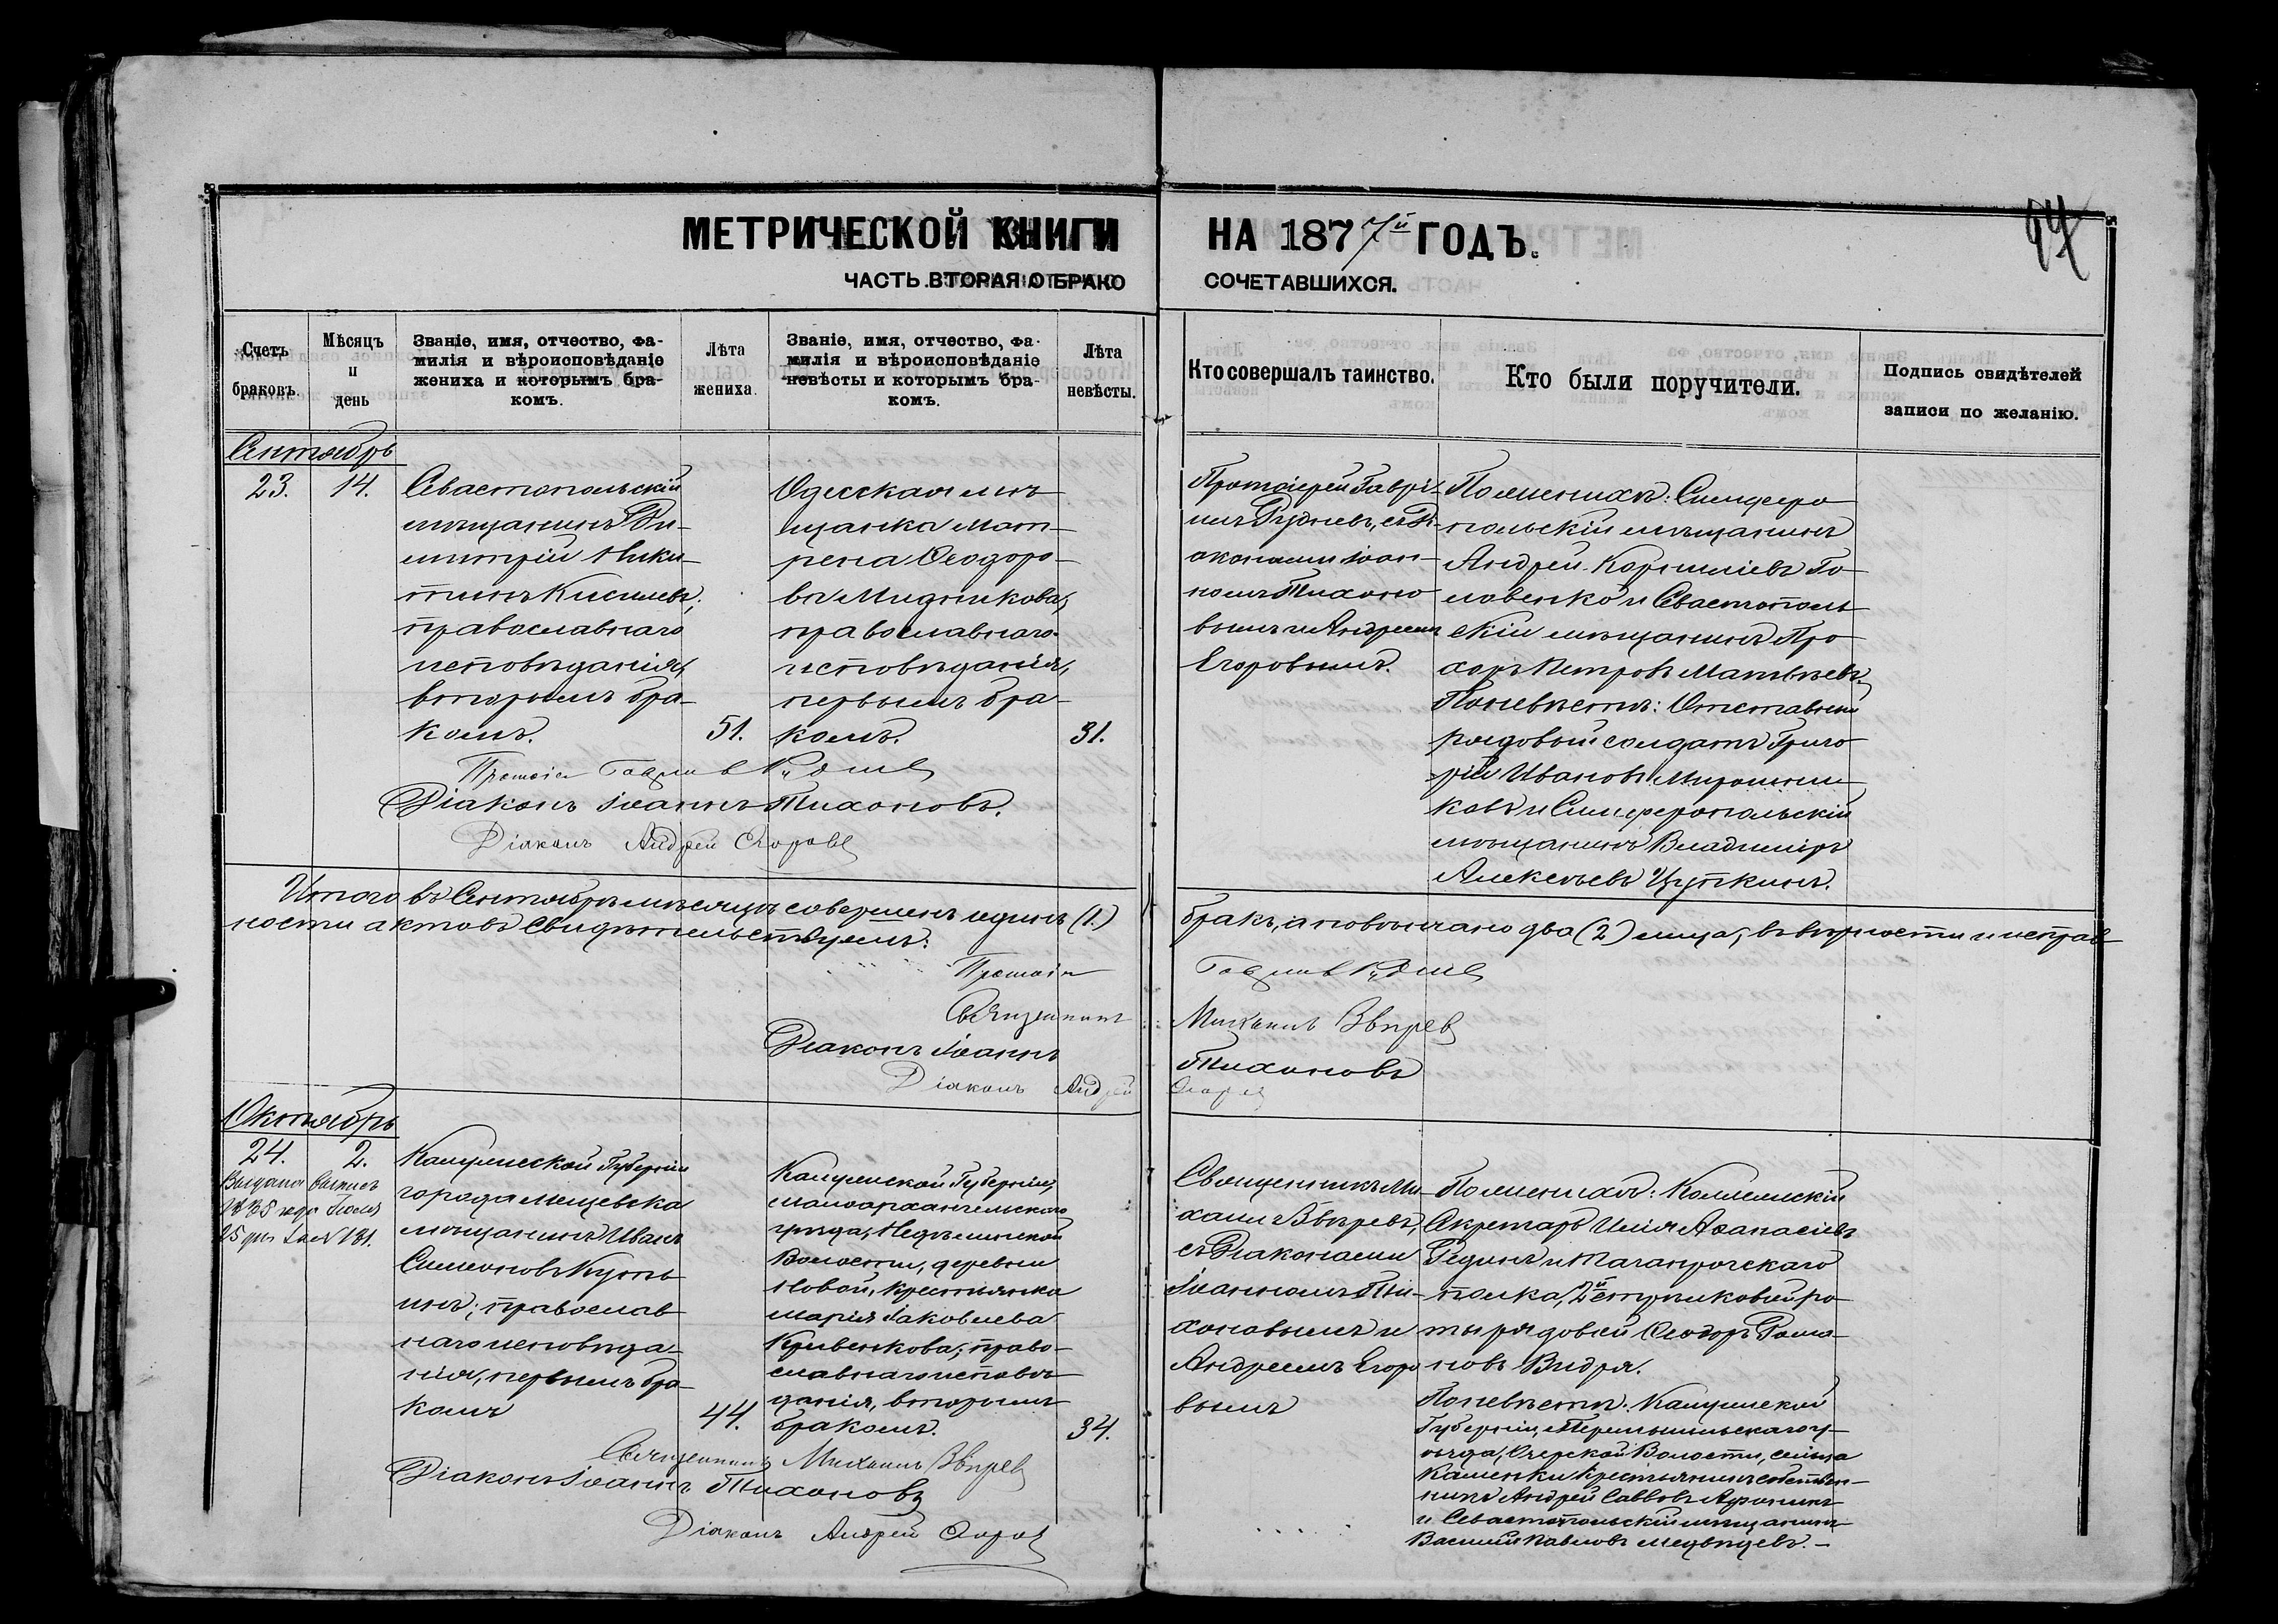 МЕТРИЧЕСКОЙ КНИГИ НА 1877й ГОДЪ.
ЧАСТЬ ВТОРАЯ О БРАКОСОЧЕТАВШИХСЯ.
Счетъ браковъ.
Мѣсяцъ и день
Званіе, имя, отчество, фа-
милія и вѣроисповѣданіе
жениха и которымъ бра-
комъ.
Лѣта жениха.
Званіе, имя, отчество, фа-
милія и вѣроисповѣданіе
невѣсты и которымъ бра-
комъ.
Лѣта невѣсты.
Кто совершалъ таинство.
Кто были поручители.
Подпись свидѣтелей
записи по желанію.
Сентябрь
23. 14.
Севастопольскій
мѣщанинъ Ди-
митрій Ники-
тинъ Киселевъ;
православнаго
исповѣданія,
вторымъ бра-
комъ.
51.
Одесская мѣ-
щанка Мат-
рена Ѳеодоро-
ва Мидникова,
православнаго
исповѣданія,
первымъ бра-
комъ.
31.
Протоіерей Гаврі-
илъ Рудневъ, съ Ді-
аконами Іоан-
номъ Тихоно
вымъ и Андреемъ
Егоровымъ.
По женихѣ: Симферо
польскій мѣщанинъ
Андрей Корниліевъ Го-
ловенко и Севастополь
скій мѣщанинъ Про
хоръ Петровъ Матвѣевъ,
По невѣстѣ: Отставной
рядовый солдатъ Григо
рій Ивановъ Мирошни
ковъ и Симферопольскій
мѣщанинъ Владиміръ
Алексѣевъ Цупкинъ.
Протоіе Гавріилъ Рудневъ
Діаконъ Іоаннъ Тихоновъ.
Діаконъ Андрей Егоровъ
Итого въ Сентябрѣ мѣсяцѣ совершенъ одинъ (1.) бракъ, а повѣнчано два (2) лица; въ вѣрности и исправ
ности актовъ свидѣтельствуемъ:
Протоіе Гавріилъ Рудневъ
Священникъ Михаилъ Звѣревъ
Діаконъ Іоаннъ Тихоновъ
Діаконъ Андрей Егоровъ
Октябрь
24. 2.
Выдана выпись
года Іюля
25 дня за № 181.
Калужской Губерніи
города Мещевска
мѣщанинъ Иванъ
Симоновъ
православ
наго исповѣда-
нія, первымъ бра-
комъ
44.
Калужской Губерніи,
Малоархангельскаго
уѣзда,
Волости, деревни
Новой, крестьянка
Марія Іаковлева
Кривенкова; право-
славнаго исповѣ-
данія, вторымъ
бракомъ.
34.
Священникъ Ми-
хаилъ Звѣревъ,
съ Діаконами
Іоанномъ Ти-
хоновымъ и
Андреемъ Егоро
вымъ
По женихѣ: Коллежскій
Секретарь Илія Аѳанасіевъ
Рединъ и Таганрогскаго
полка, 2й стрѣлковой ро-
ты рядовый Ѳеодоръ Рома-
новъ Выдря.
По невѣстѣ: Калужской
Губерніи, Перемышльскаго у-
ѣзда, Волости, сельца
Каменки крестьянинъ собствен-
никъ Андрей Саввовъ
и Севастопольскій мѣщанинъ
Василій Павловъ Медвѣдевъ.
Священникъ Михаилъ Звѣревъ
Діаконъ Іоаннъ Тихоновъ
Діаконъ Андрей Егоровъ